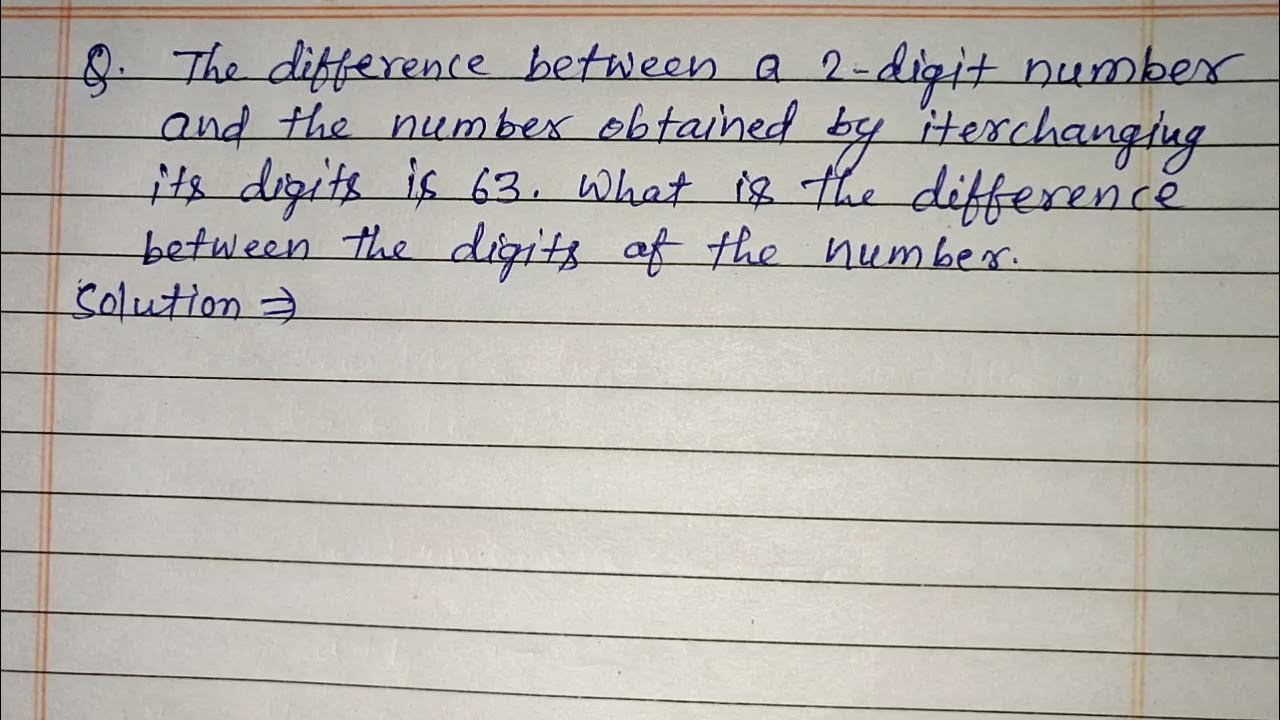 Q. The difference between a 2-digit number
and the number obtained by iterchanging
its digits is 63. What is the difference
between the digits of the number.
Solution ⇒